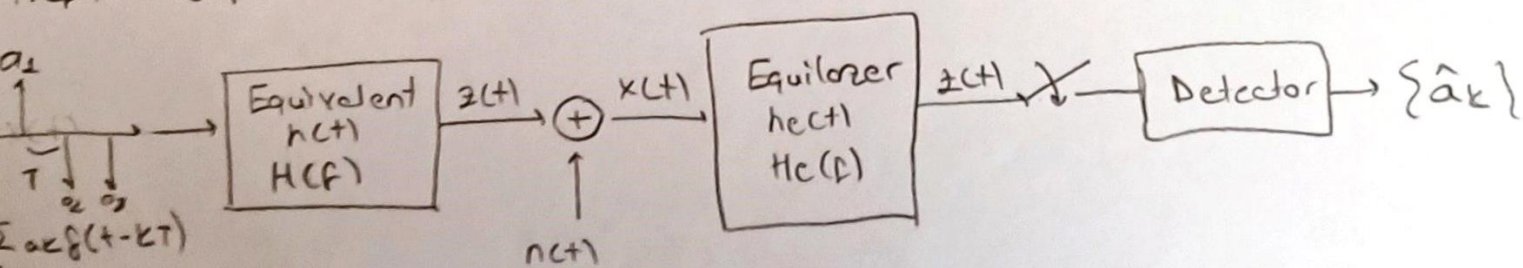 a1
T
a2 a3
Σ akδ(t-kT)
Equivelent
h(t)
H(f)
z(t)
+
n(t)
x(t)
Equilozer
he(t)
He(f)
z(t)
Detector
{âk}